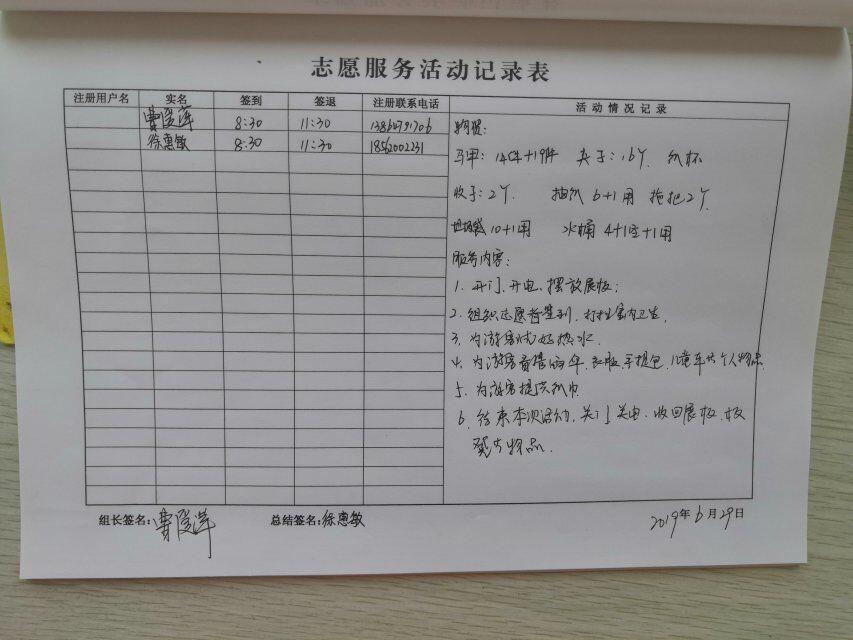 志愿服务活动记录表
注册用户名 实名 签到 签退 注册联系电话 活动情况记录
8:30 11:30 13860791706
徐惠敏 8:30 11:30 18562002231
物资:
马甲: 14件+19件 夹子: 16个 纸杯
收子: 2个 抽纸 6+1用 拖把2个
垃圾袋 10+1用 水桶 4+1空+1用
服务内容:
1. 开门、开电、摆放展板;
2. 组织志愿者签到, 打扫室内卫生.
3. 为游客烧好热水.
4. 为游客看管的伞、衣服、手提包、儿童车等个人物品
5. 为游客提供纸巾
6. 结束本次活动, 关门、关电、收回展板、板
凳等物品.
组长签名: 总结签名: 徐惠敏 2019年6月29日